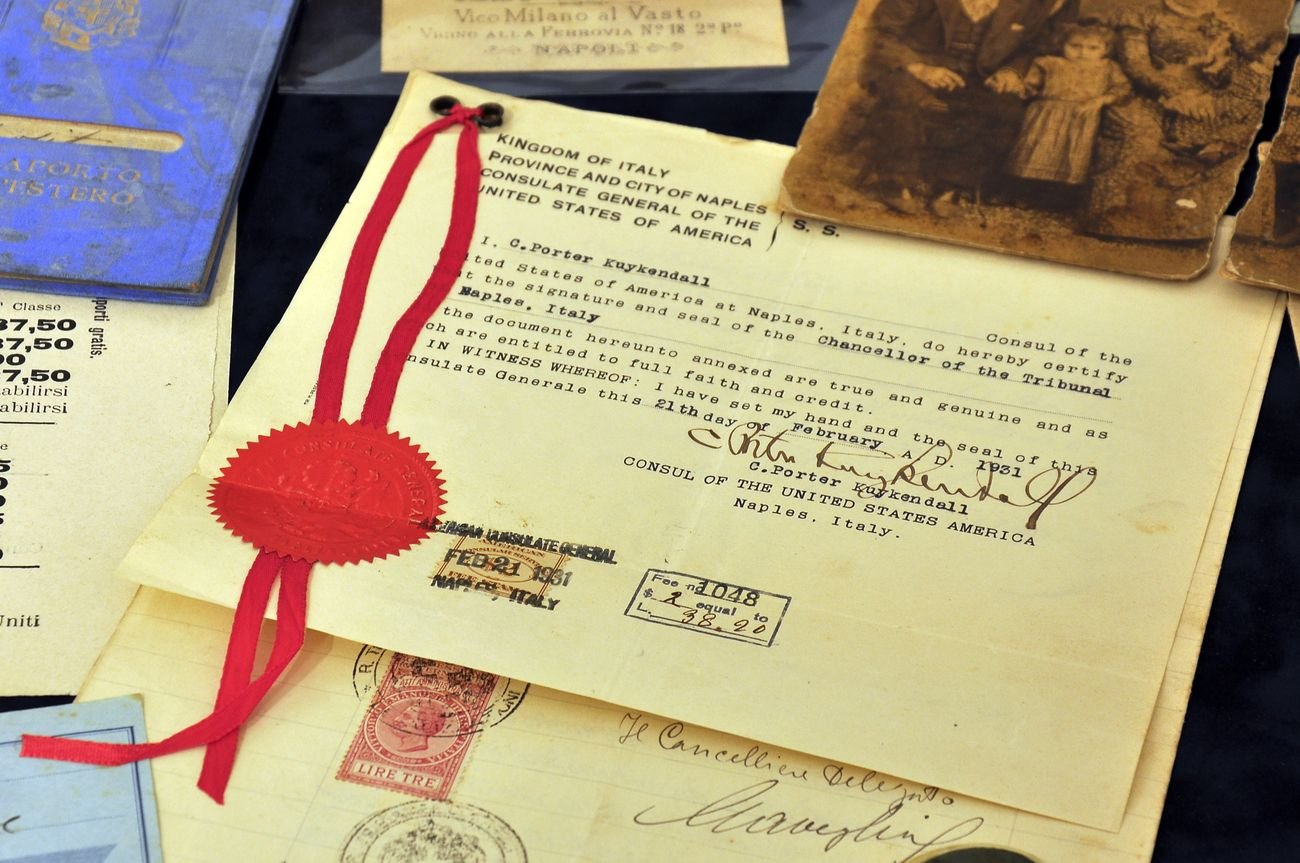 Vico Milano al Vasto
VICINO ALLA FERROVIA Nº 18 2º Pº
NAPOLI
APORTO
ESTERO
Classe
37,50
37,50
00
37,50
abilirsi
abilirsi
porti gratis.
Uniti
KINGDOM OF ITALY
PROVINCE AND CITY OF NAPLES
CONSULATE GENERAL OF THE
UNITED STATES OF AMERICA
S. S.
I. C.Porter Kuykendall
Consul of the
ited States of America at Naples, Italy, do hereby certify
t the signature and seal of the Chancellor of the Tribunal
Naples, Italy
the document hereunto annexed are true and genuine and as
ch are entitled to full faith and credit.
IN WITNESS WHEREOF: I have set my hand and the seal of this
nsulate Generale this 21th day of February A. D. 1931
C Porter Kuykendall
C.Porter Kuykendall
CONSUL OF THE UNITED STATES AMERICA
Naples, Italy.
CONSULATE GENERAL
AMERICAN CONSULATE GENERAL
FEB 21 1931
NAPLES, ITALY
AMERICAN
Fee nº 1048
$ 2 equal to
L. 38.20
LIRE TRE
Il Cancelliere Delegato